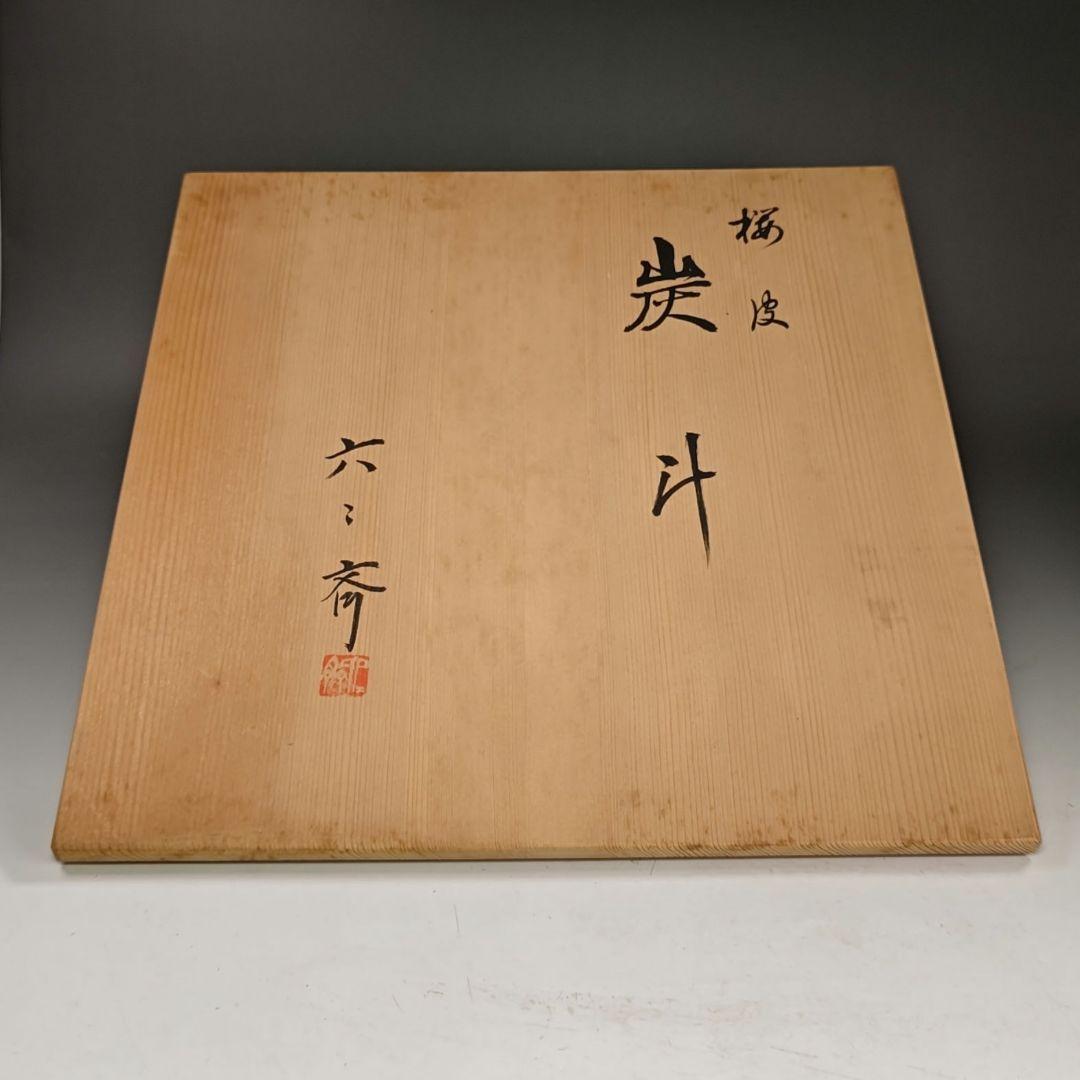 桜皮
炭斗
六々斎